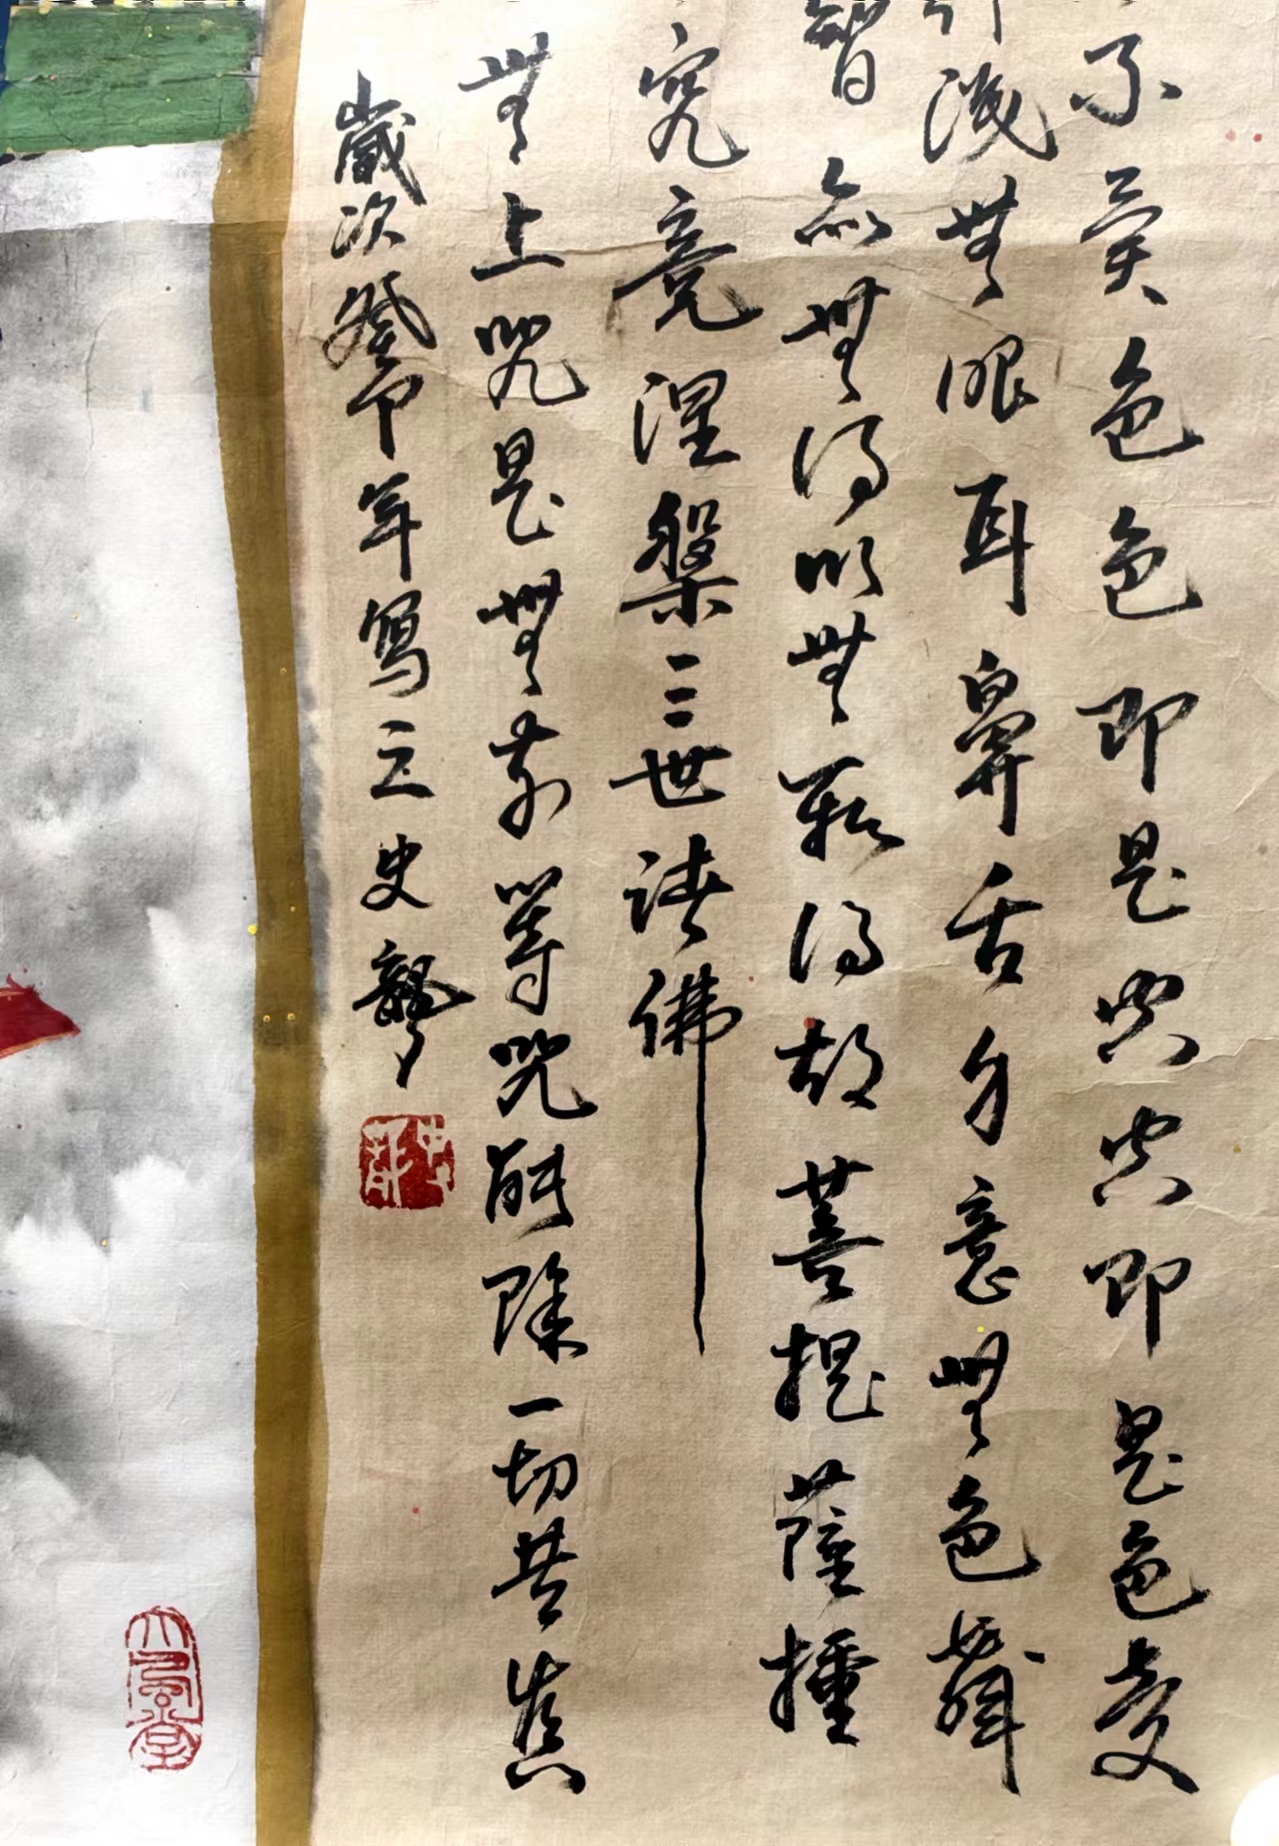 不異色色即是空空即是色受
減無眼耳鼻舌身意無色聲
智亦無得以無所得故菩提薩埵
究竟涅槃三世諸佛
無上咒是無等等咒能除一切苦真
歲次癸卯年寫史